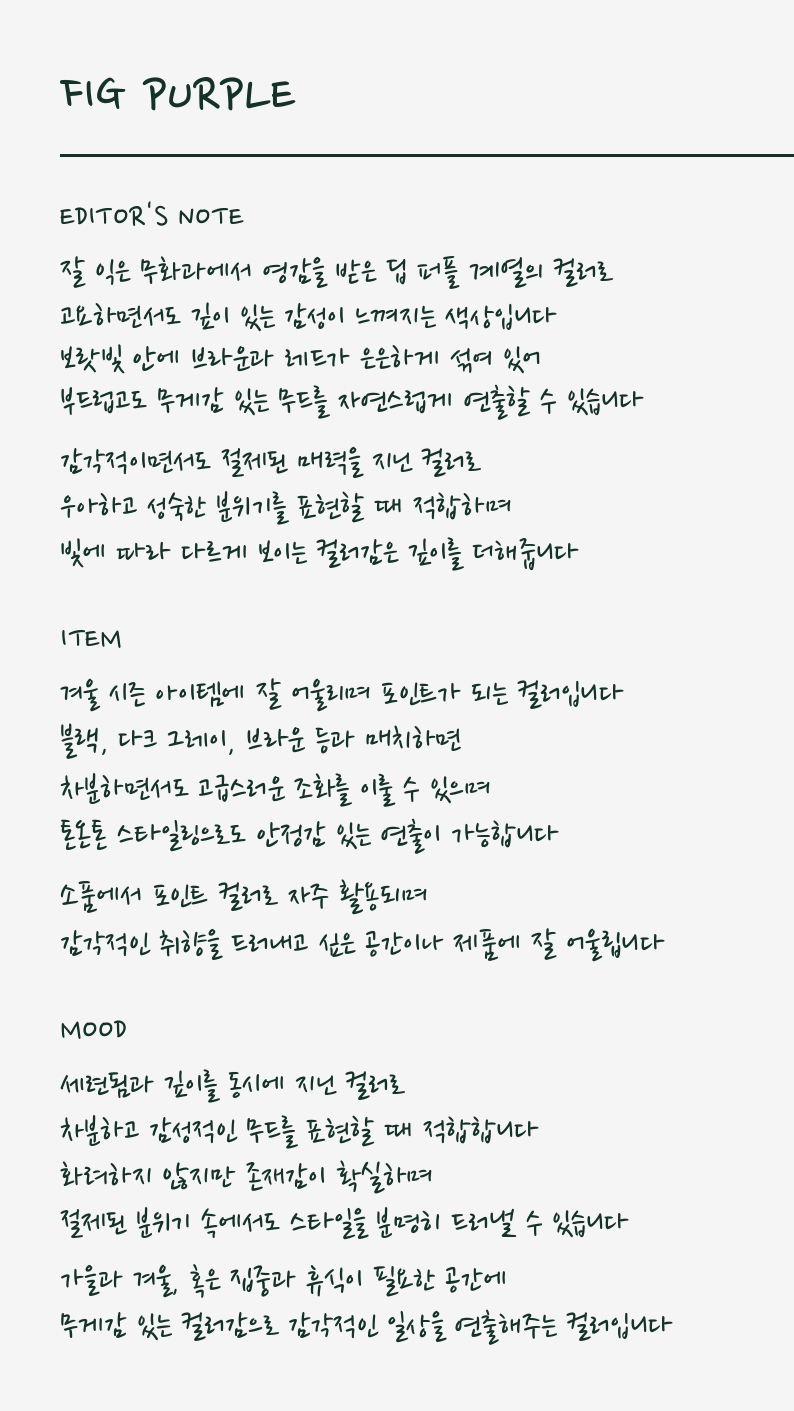 FIG PURPLE
EDITOR'S NOTE
잘 익은 무화과에서 영감을 받은 딥 퍼플 계열의 컬러로
고요하면서도 깊이 있는 감성이 느껴지는 색상입니다
보랏빛 안에 브라운과 레드가 은은하게 섞여 있어
부드럽고도 무게감 있는 무드를 자연스럽게 연출할 수 있습니다
감각적이면서도 절제된 매력을 지닌 컬러로
우아하고 성숙한 분위기를 표현할 때 적합하며
빛에 따라 다르게 보이는 컬러감은 깊이를 더해줍니다
ITEM
겨울 시즌 아이템에 잘 어울리며 포인트가 되는 컬러입니다
블랙, 다크 그레이, 브라운 등과 매치하면
차분하면서도 고급스러운 조화를 이룰 수 있으며
톤온톤 스타일링으로도 안정감 있는 연출이 가능합니다
소품에서 포인트 컬러로 자주 활용되며
감각적인 취향을 드러내고 싶은 공간이나 제품에 잘 어울립니다
MOOD
세련됨과 깊이를 동시에 지닌 컬러로
차분하고 감성적인 무드를 표현할 때 적합합니다
화려하지 않지만 존재감이 확실하며
절제된 분위기 속에서도 스타일을 분명히 드러낼 수 있습니다
가을과 겨울, 혹은 집중과 휴식이 필요한 공간에
무게감 있는 컬러감으로 감각적인 일상을 연출해주는 컬러입니다